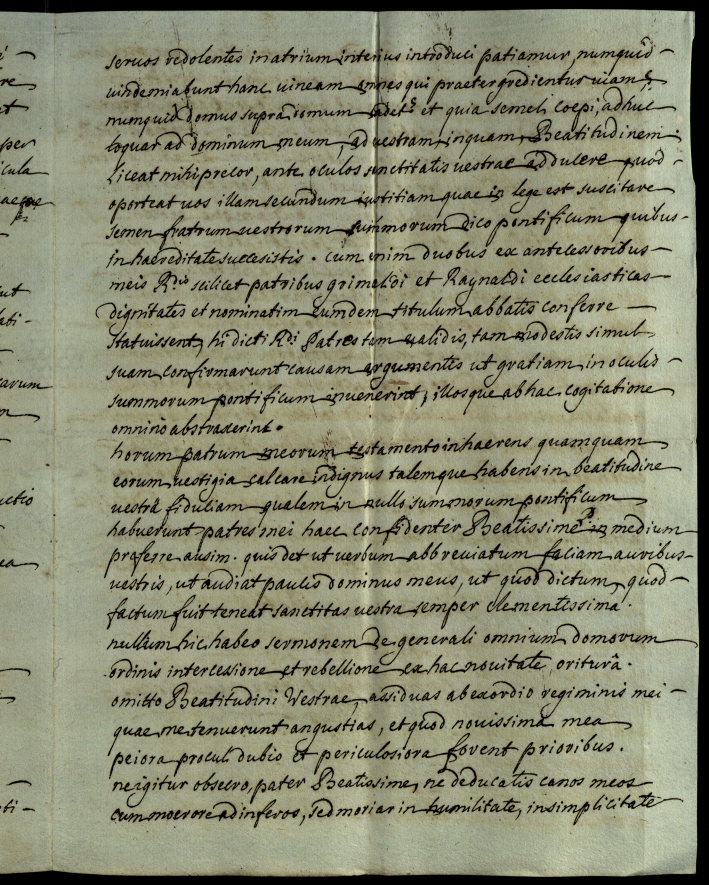 seruos redolentes in atrium interius introduci patiamur, numquid
uindemiabunt hanc uineam omnes qui praetergredientur uiam?
numquid domus supra domum cadet? et quia semel coepi, adhuc
loquar ad dominum meum, ad uestram, inquam, Beatitudinem.
Liceat mihi precor, ante oculos sanctitatis uestrae adducere quod
oporteat uos illam secundum iustitiam quae in lege est suscitare
semen fratrum uestrorum summorum dico pontificum quibus
in haereditate successistis. cum enim duobus ex antecessoribus
meis R.dis scilicet patribus grimaldi et Raynaldi ecclesiasticas
dignitates et nominatim eumdem titulum abbatis conferre
statuissent, hi dicti R.di Patres tam ualidis, tam modestis simul
suam confirmarunt causam argumentis ut gratiam in oculis
summorum pontificum inuenerint, illosque ab hac cogitatione
omnino abstraxerint.
horum patrum meorum testamento inhaerens quamquam
eorum uestigia calcare indignus talemque habens in beatitudine
uestrâ fiduciam qualem in nullo summorum pontificum
habuerunt patres mei haec confidenter Beatissime P. in medium
proferre ausim. quis det ut uerbum abbreuiatum faciam auribus
uestris, ut audiat paulis dominus meus, ut quod dictum, quod
factum fuit teneat sanctitas uestra semper clementissima.
nullum hic habeo sermonem de generali omnium domorum
ordinis intercessione et rebellione ex hac nouitate oriturâ.
omitto Beatitudini Westrae, assiduas ab exordio regiminis mei
quae me tenuerunt angustias, et quod nouissima mea
peiora procul dubio et periculosiora fovent prioribus.
ne igitur obsecro, pater Beatissime, ne deducatis canos meos
cum moerore ad inferos, sed moriar in humilitate, in simplicitate